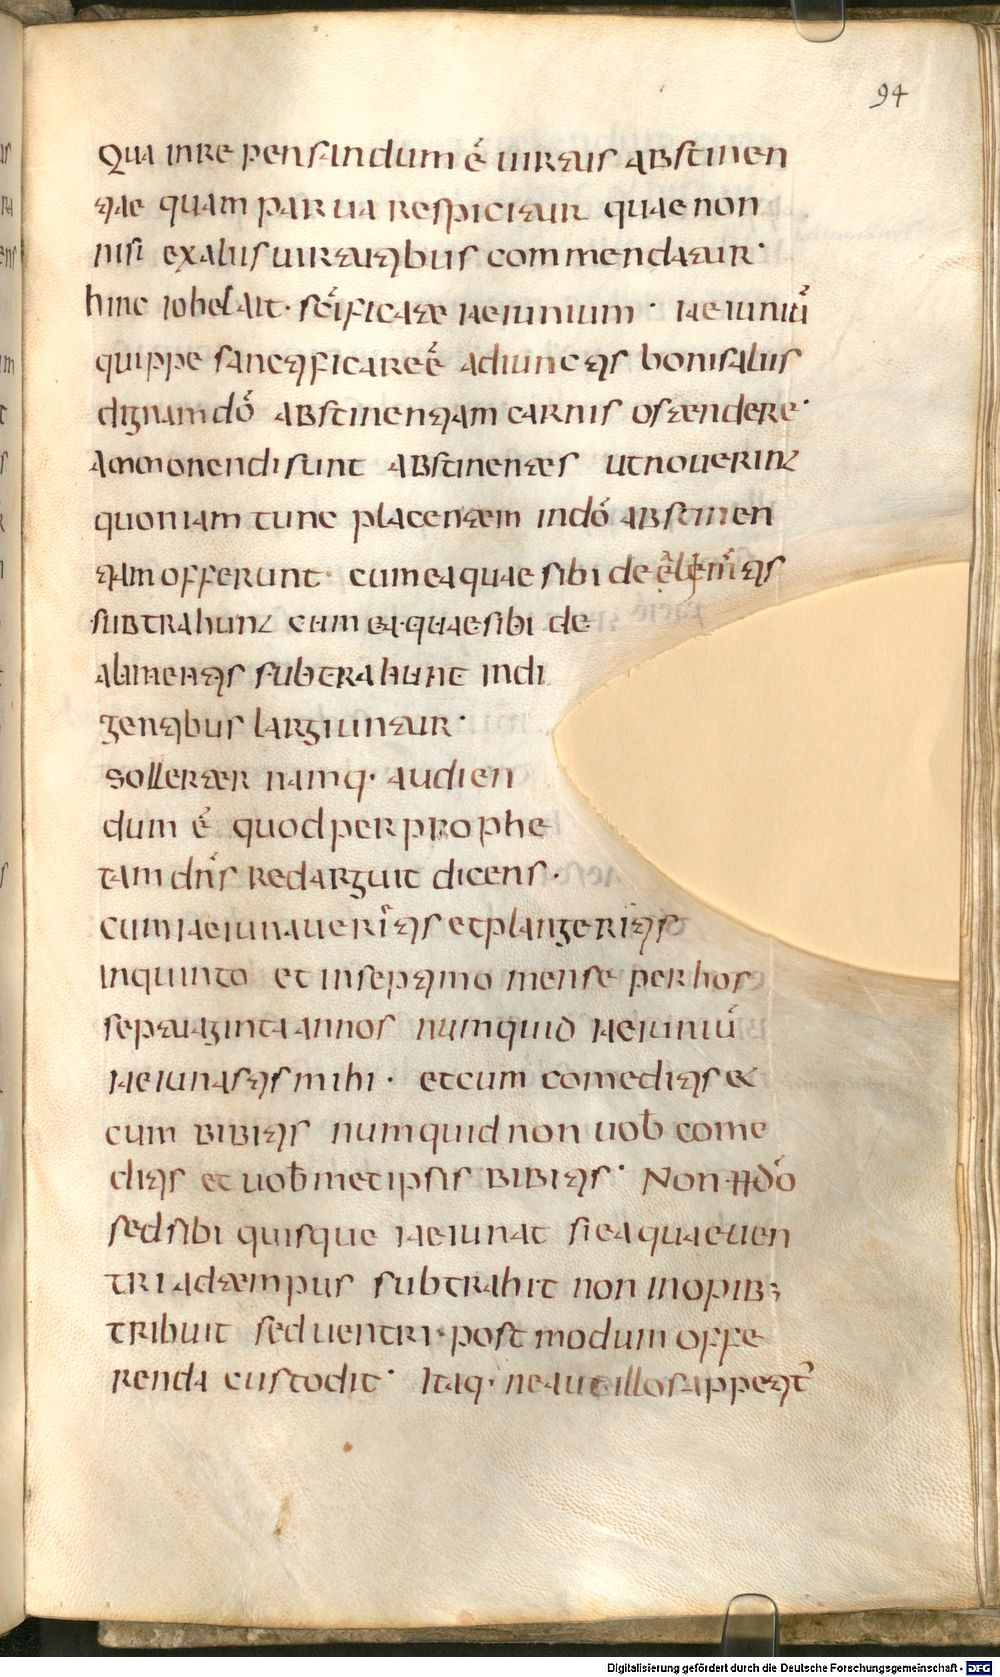 94
Qua inre pensandum ē uirtus abstinen
tiae quam parua respicitur quae non
nisi exaliis uirtutibus commendatur·
hinc iohel ait· sc̄ificate ieiunium· ieiuniū
quippe sanctificare ē adiunctis bonis aliis
dignam dō abstinentiam carnis ostendere·
Ammonendi sunt abstinentes ut noverint
quoniam tunc placentem indō abstinen
tiam offerunt· cum ea quae sibi de
subtrahunt cum ea·quae sibi de
alimentis subtrahunt indi
gentibus largiuntur·
sollerter namq· audien
dum ē quod per prophe
tam dn̄s redarguit dicens·
cum ieiunaueritis et plangeritis
inquinto et inseptimo mense per hos
septuaginta annos numquid ieiuniū
ieiunastis mihi· et cum comeditis &
cum bibitis numquid non uob̄ come
ditis et uob̄metipsis bibitis· Non dō
sed sibi quisque ieiunat si ea quae uen
tri adtempus subtrahit non inopib;
tribuit sed uentri·post modum offe
renda custodit· Itaq· ne aut illos appetit
Digitalisierung gefördert durch die Deutsche Forschungsgemeinschaft - DFG